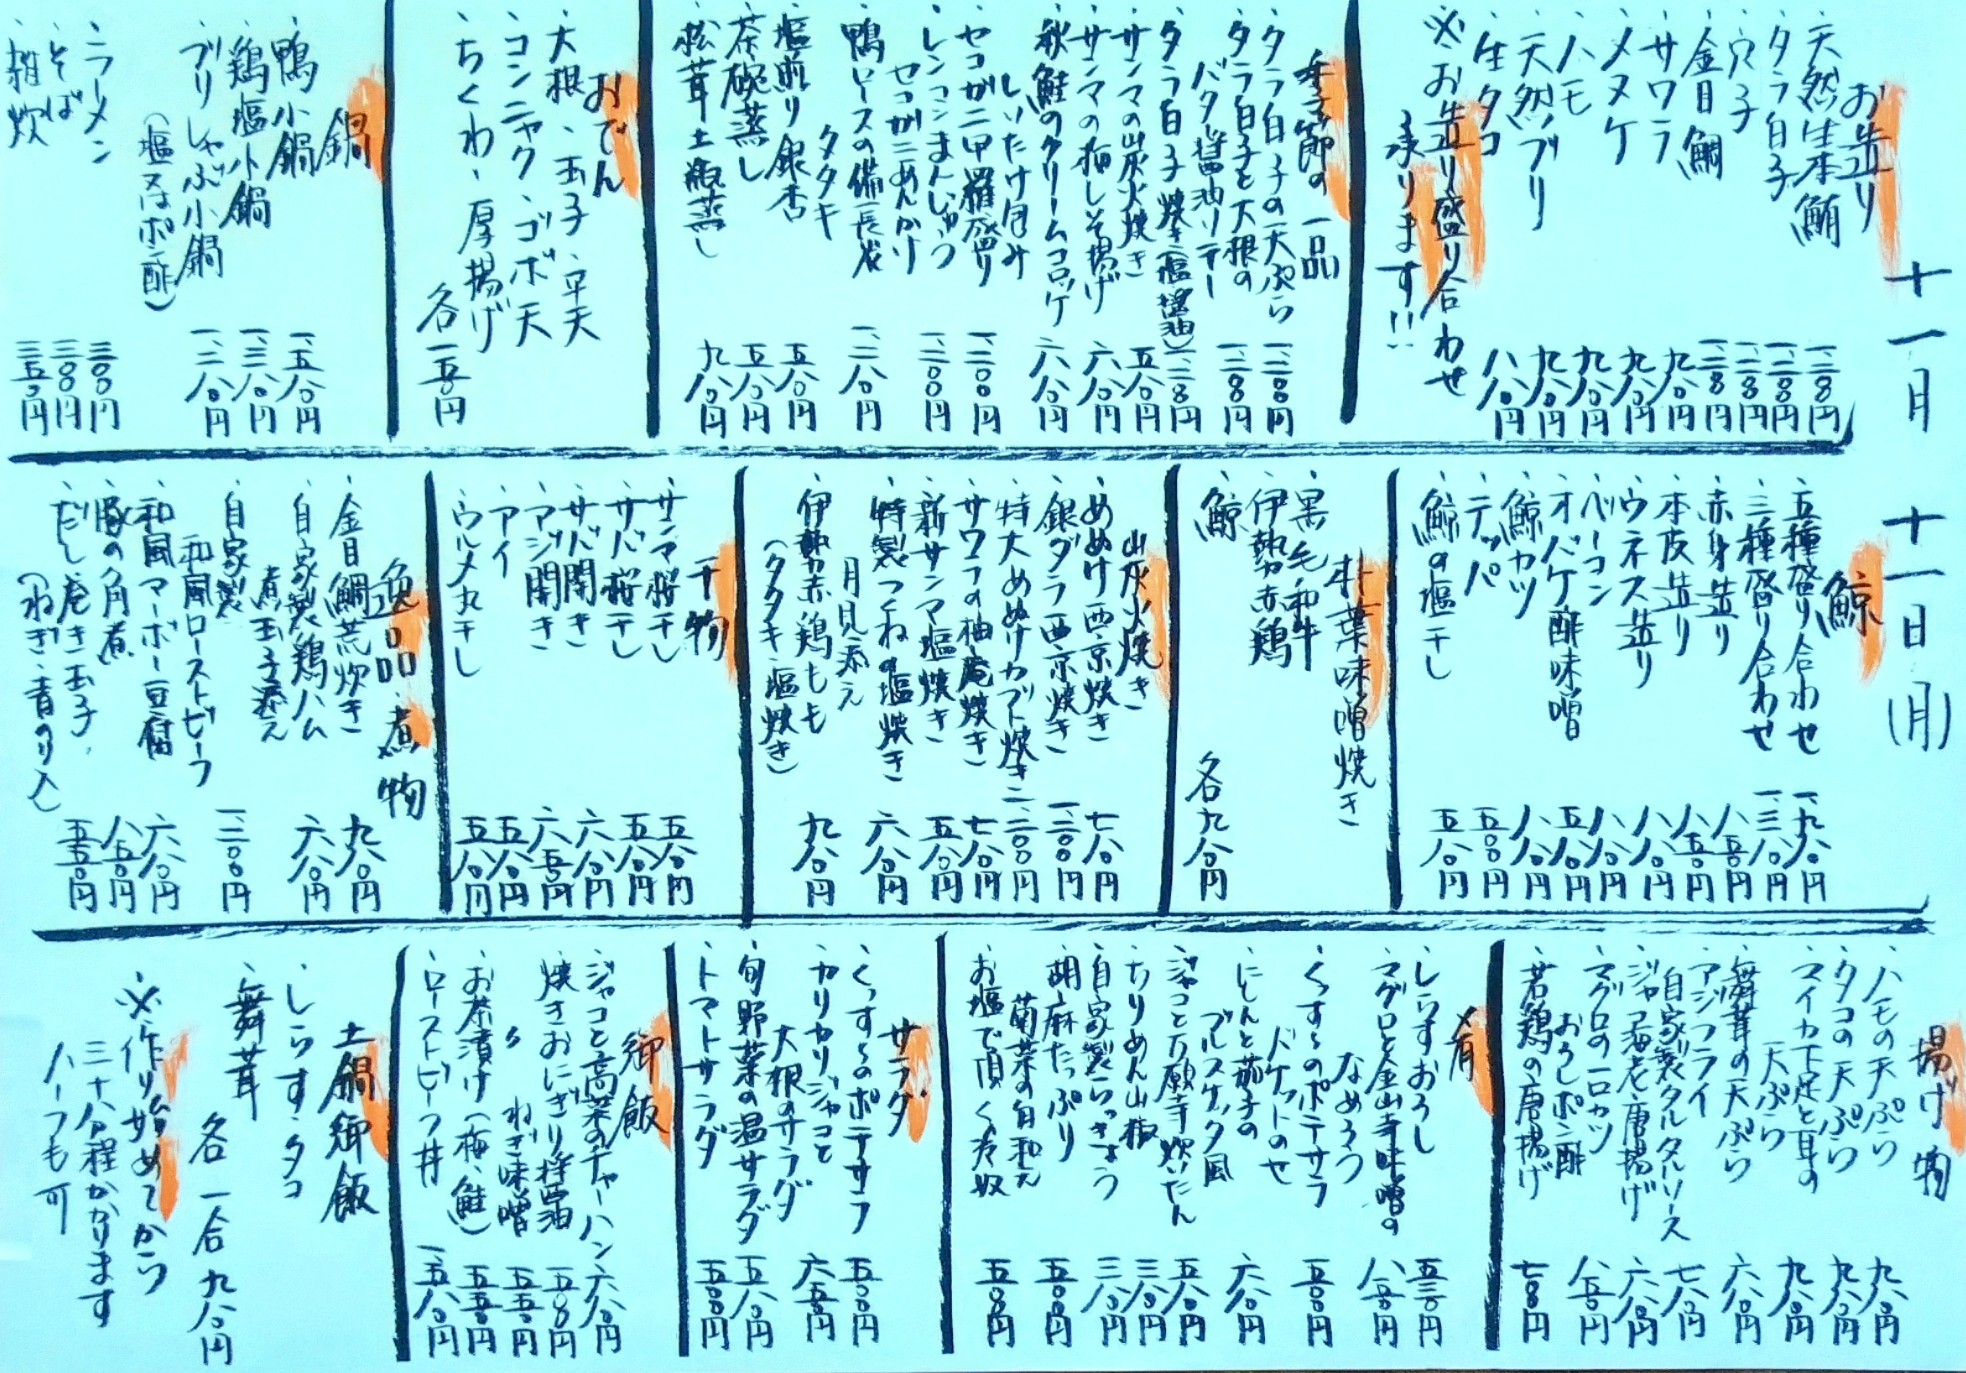 十一月十一日(月)
お造り
・天然生本鮪 一、二八〇円
・タラ白子 一、二八〇円
・穴子 一、二八〇円
・金目鯛 一、二八〇円
・サワラ 九八〇円
・メヌケ 九八〇円
・ハモ 九八〇円
・天然ブリ 九八〇円
・生タコ 八八〇円
※お造り盛り合わせ
承ります!!
季節の一品
・タラ白子の天ぷら 一、二八〇円
・タラ白子と大根の
バタ醤油ソテー 一、二八〇円
・タラ白子焼き(塩・醤油) 一、二八〇円
・サンマの炭火焼き 五八〇円
・サンマの梅しそ揚げ 六八〇円
・秋鮭のクリームコロッケ 六八〇円
・しいたけ包み
・セコガニ甲羅盛り 一、二〇〇円
・レンコンまんじゅう
セコガニあんかけ 一、二〇〇円
・鴨ロースの備長炭
タタキ 一、二八〇円
・塩煎り銀杏 五八〇円
・茶碗蒸し 五八〇円
・松茸土瓶蒸し 九八〇円
おでん
・大根・玉子・平天
・コンニャク・ゴボ天
・ちくわ・厚揚げ
各一五〇円
鍋
・鴨小鍋 一、五八〇円
・鶏塩小鍋 一、三八〇円
・ブリしゃぶ小鍋 一、二八〇円
(塩又はポン酢)
・ラーメン 三〇〇円
・そば 三〇〇円
・雑炊 三五〇円
鯨
・五種盛り合わせ 一、九八〇円
・三種盛り合わせ 一、三八〇円
・赤身造り 八五〇円
・本皮造り 八五〇円
・ウネス造り 八八〇円
・ベーコン 八八〇円
・オバケ酢味噌 五八〇円
・鯨カツ 八八〇円
・テッパ 五〇〇円
・鯨の塩干し 五八〇円
朴葉味噌焼き
・黒毛和牛
・伊勢赤鶏
・鯨
各九八〇円
炭火焼き
・めぬけ西京焼き 七八〇円
・銀ダラ西京焼き 一、二〇〇円
・特大めぬけカブト焼き 二、二〇〇円
・サワラの柚庵焼き 七八〇円
・新サンマ塩焼き 五八〇円
・特製つくねの塩焼き
月見添え 六八〇円
・伊勢赤鶏もも
(タタキ・塩焼き) 九八〇円
干物
・サンマ桜干し 五八〇円
・サバ桜干し 五八〇円
・サバ開き 六八〇円
・アジ開き 六五〇円
・アイ 五八〇円
・ウルメ丸干し 五八〇円
逸品・煮物
・金目鯛荒炊き 九八〇円
・自家製鶏ハム
煮玉子添え 六八〇円
・自家製
和風ローストビーフ 一、二〇〇円
・和風マーボー豆腐 六八〇円
・豚の角煮 八五〇円
・だし巻き玉子
(ねぎ・青のり入) 五五〇円
揚げ物
・ハモの天ぷら 九八〇円
・タコの天ぷら 九八〇円
・マイカ下足と耳の
天ぷら 九八〇円
・舞茸の天ぷら 六八〇円
・アジフライ
自家製タルタルソース 七八〇円
・ジャコ海老唐揚げ 六八〇円
・マグロの一口カツ
おろしポン酢 八五〇円
・若鶏の唐揚げ 七八〇円
肴
・しらすおろし 五三〇円
・マグロと金山寺味噌の
なめろう 八五〇円
・くっすぅのポテサラ
バケットのせ 五〇〇円
・にしんと茄子の
ブルスケッタ風 六八〇円
・ジャコと万願寺炊いたん 五八〇円
・ちりめん山椒 三八〇円
・自家製らっきょう 三八〇円
・胡麻たっぷり
菊菜の白和え 五五〇円
・お塩で頂く冷奴 五五〇円
サラダ
・くっすぅのポテサラ 五〇〇円
・カリカリジャコと
大根のサラダ 六五〇円
・旬野菜の温サラダ 五八〇円
・トマトサラダ 五五〇円
御飯
・ジャコと高菜のチャーハン 六八〇円
・焼きおにぎり醤油 五〇〇円
〃 ねぎ味噌 五五〇円
・お茶漬け(梅・鮭) 五五〇円
・ローストビーフ丼 一、五八〇円
土鍋御飯
・しらす・タコ
・舞茸
各一合九八〇円
※作り始めてから
三十分程かかります
ハーフも可